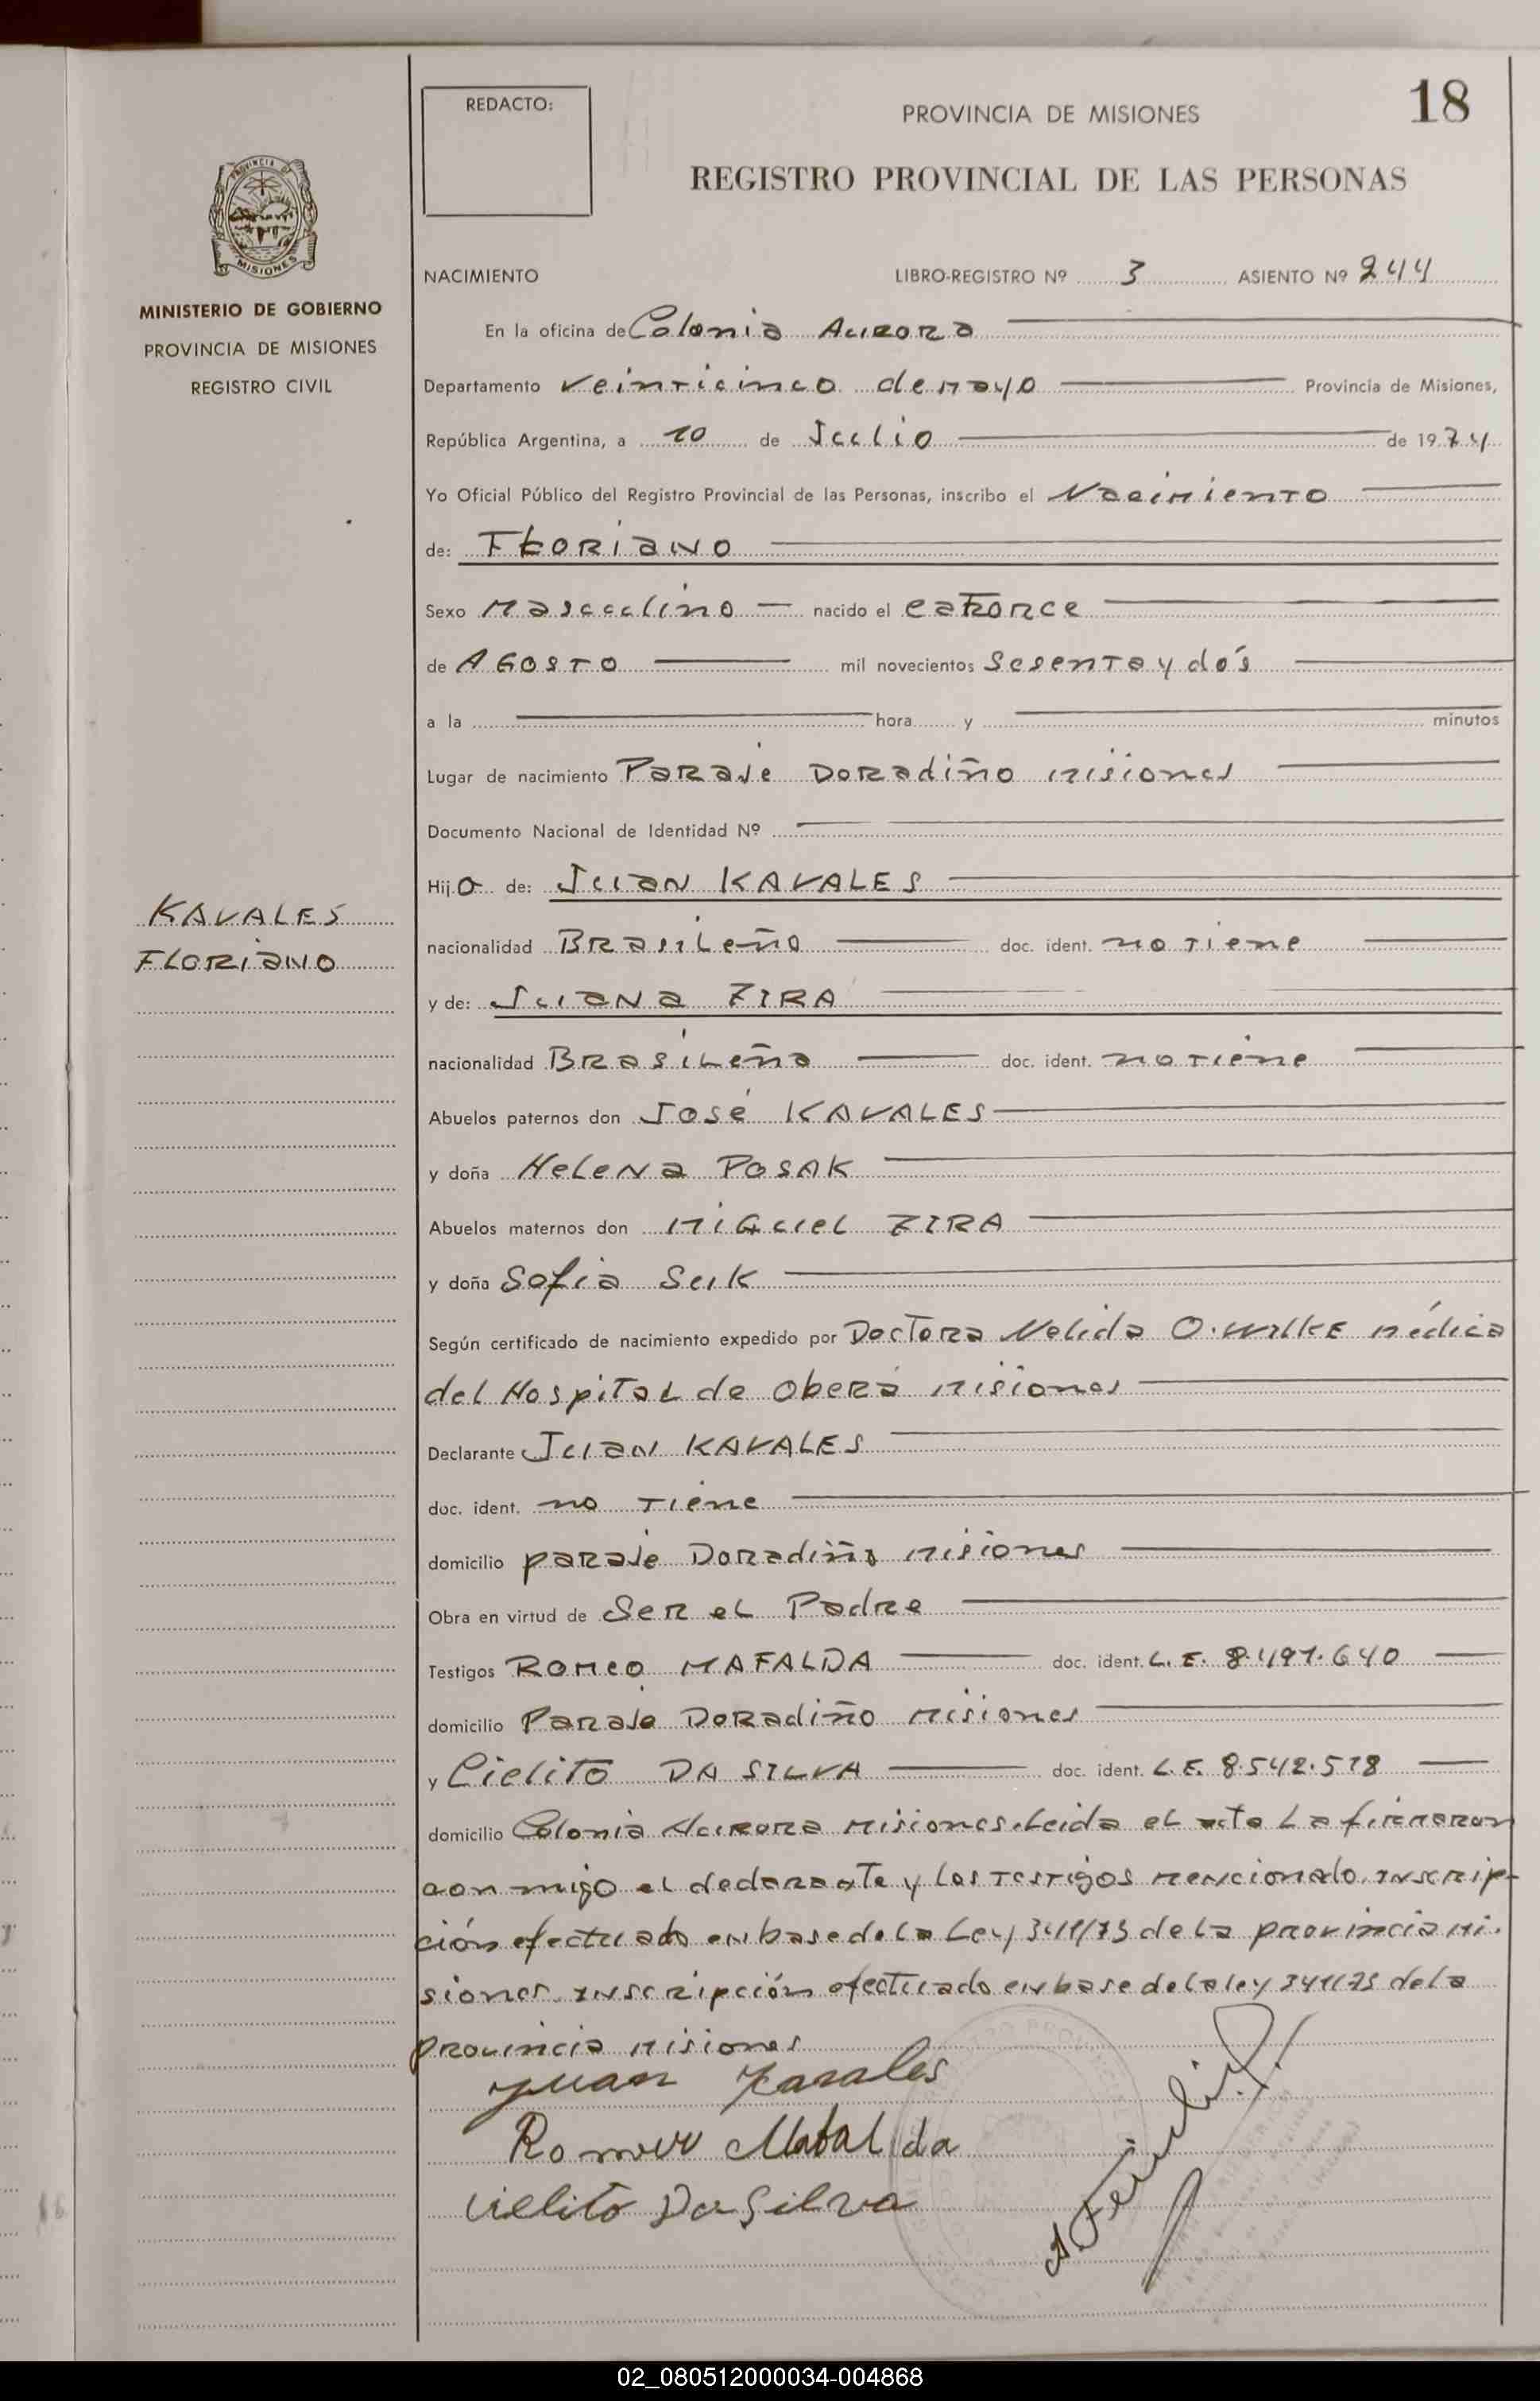 REDACTO:
PROVINCIA DE MISIONES
18
REGISTRO PROVINCIAL DE LAS PERSONAS
PROVINCIA DE
MISIONES
MINISTERIO DE GOBIERNO
PROVINCIA DE MISIONES
REGISTRO CIVIL
NACIMIENTO LIBRO-REGISTRO Nº 3 ASIENTO Nº 244
En la oficina de Colonia Aurora
Departamento Veinticinco de Mayo Provincia de Misiones,
República Argentina, a 10 de Julio de 1974
Yo Oficial Público del Registro Provincial de las Personas, inscribo el Nacimiento
de: FLORIANO
Sexo Masculino nacido el catorce
de AGOSTO mil novecientos Sesenta y dós
a la hora y minutos
Lugar de nacimiento Paraje Doradiño Misiones
Documento Nacional de Identidad Nº
Hijo de: Juan KAVALES
KAVALES
FLORIANO
nacionalidad Brasileño doc. ident. no tiene
y de: Juana ZIRA
nacionalidad Brasileña doc. ident. no tiene
Abuelos paternos don José KAVALES
y doña Helena POSAK
Abuelos maternos don Miguel ZIRA
y doña Sofia Seik
Según certificado de nacimiento expedido por Doctora Nelida O. WILKE médica
del Hospital de Oberá Misiones
Declarante Juan KAVALES
doc. ident. no tiene
domicilio paraje Doradiño Misiones
Obra en virtud de Ser el Padre
Testigos Romeo MAFALDA doc. ident. L.E. 8.497.640
domicilio Paraje Doradiño Misiones
y Cielito DA SILVA doc. ident. L.E. 8.542.518
domicilio Colonia Aurora Misiones. Leida el acta La firmaron
con migo el declarante y los testigos mencionado. Inscrip-
ción efectuado en base de la Ley 341/73 de la provincia Mi.
siones. Inscripción efectuado en base de la ley 341/73 de la
provincia Misiones
Juan Kavales
Romeu Mafalda
Cielito Da Silva
02_080512000034-004868